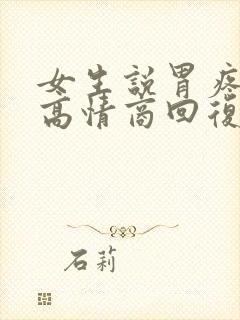 女生說胃疼
高情商回復
石莉